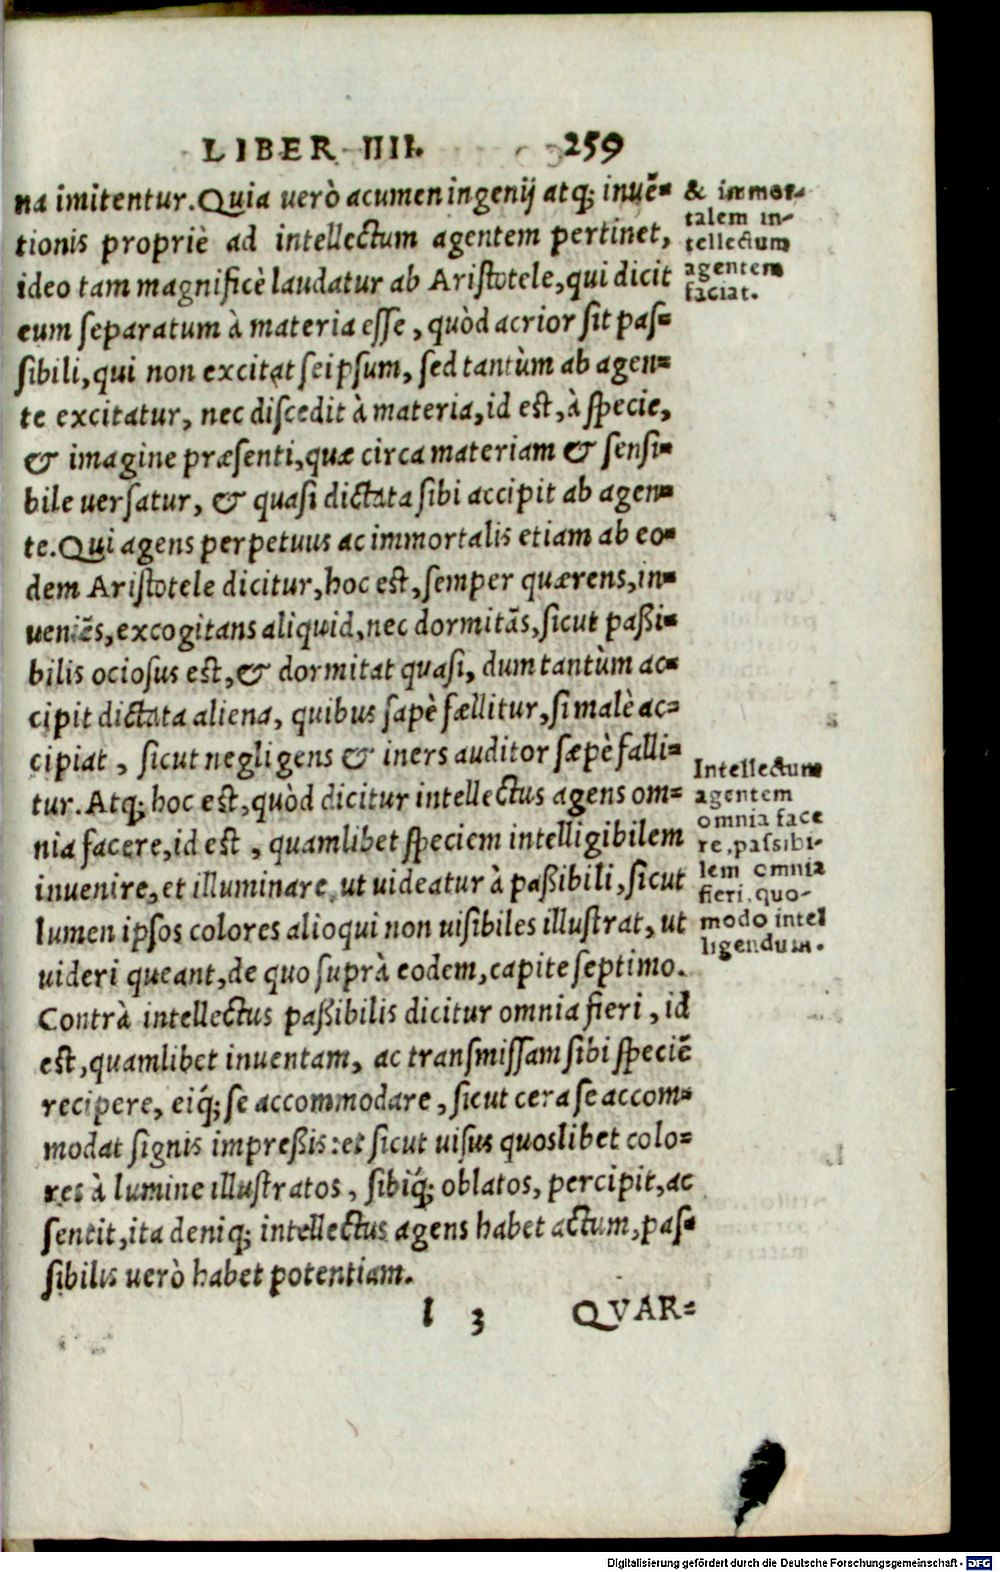 LIBER IIII. 259
na imitentur. Quia uerò acumen ingenij atq; inuē-
tionis propriè ad intellectum agentem pertinet,
ideo tam magnificè laudatur ab Aristotele, qui dicit
eum separatum à materia esse, quòd acrior sit pas-
sibili, qui non excitat seipsum, sed tantùm ab agen-
te excitatur, nec discedit à materia, id est, à specie,
& imagine præsenti, quæ circa materiam & sensi-
bile uersatur, & quasi dictata sibi accipit ab agen-
te. Qui agens perpetuus ac immortalis etiam ab eo-
dem Aristotele dicitur, hoc est, semper quærens, in-
ueniēs, excogitans aliquid, nec dormitās, sicut paßi-
bilis ociosus est, & dormitat quasi, dum tantùm ac-
cipit dictata aliena, quibus sapè fællitur, si malè ac-
cipiat, sicut negligens & iners auditor sæpè falli-
tur. Atq; hoc est, quòd dicitur intellectus agens om-
nia facere, id est, quamlibet speciem intelligibilem
inuenire, et illuminare, ut uideatur à paßibili, sicut
lumen ipsos colores alioqui non uisibiles illustrat, ut
uideri queant, de quo suprà eodem, capite septimo.
Contrà intellectus paßibilis dicitur omnia fieri, id
est, quamlibet inuentam, ac transmissam sibi speciē
recipere, eiq́; se accommodare, sicut cera se accom-
modat signis impreßis: et sicut uisus quoslibet colo-
res à lumine illustratos, sibiq́; oblatos, percipit, ac
sentit, ita deniq; intellectus agens habet actum, pas-
sibilis uerò habet potentiam.
l 3 QVAR-
& immor-
talem in-
tellectum
agentem
faciat.
Intellectum
agentem
omnia face
re, passibi-
lem omnia
fieri, quo-
modo intel
ligendum.
Digitalisierung gefördert durch die Deutsche Forschungsgemeinschaft - DFG